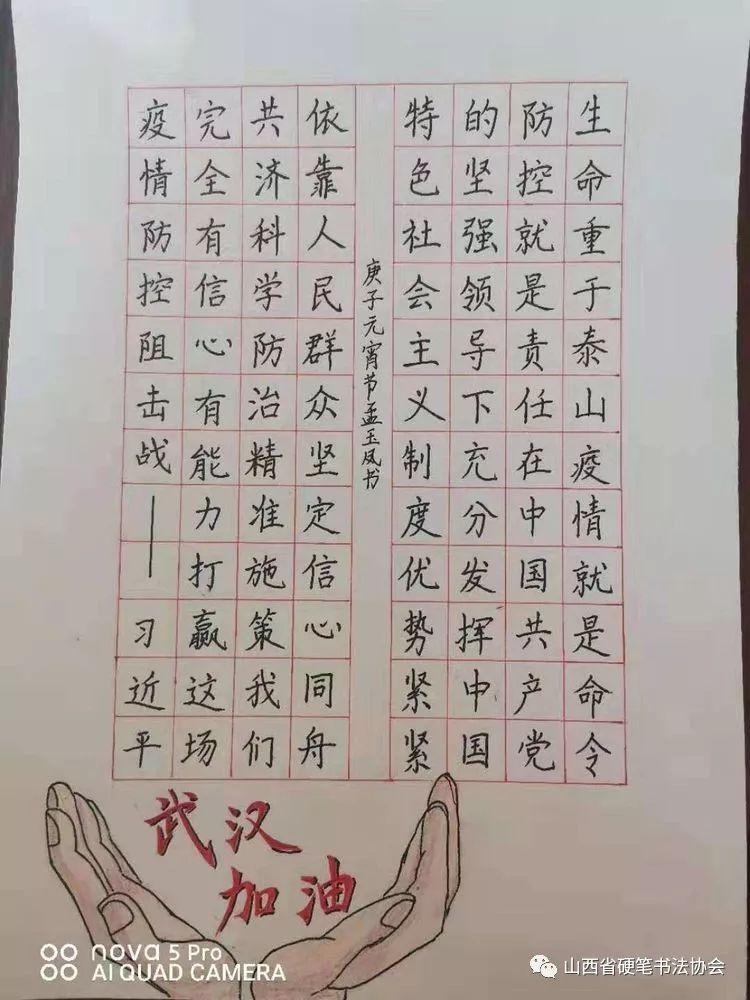 生命重于泰山疫情就是命令
防控就是责任在中国共产党
的坚强领导下充分发挥中国
特色社会主义制度优势紧紧
依靠人民群众坚定信心同舟
共济科学防治精准施策我们
完全有信心有能力打赢这场
疫情防控阻击战——习近平
庚子元宵节孟玉凤书
武汉
加油
nova 5 Pro
AI QUAD CAMERA
山西省硬笔书法协会